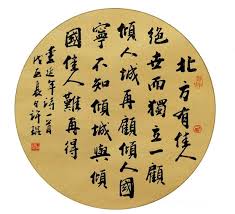 北方有佳人
絕世而獨立一顧
傾人城再顧傾人國
寧不知傾城與傾
國佳人難再得
書延年詩一首